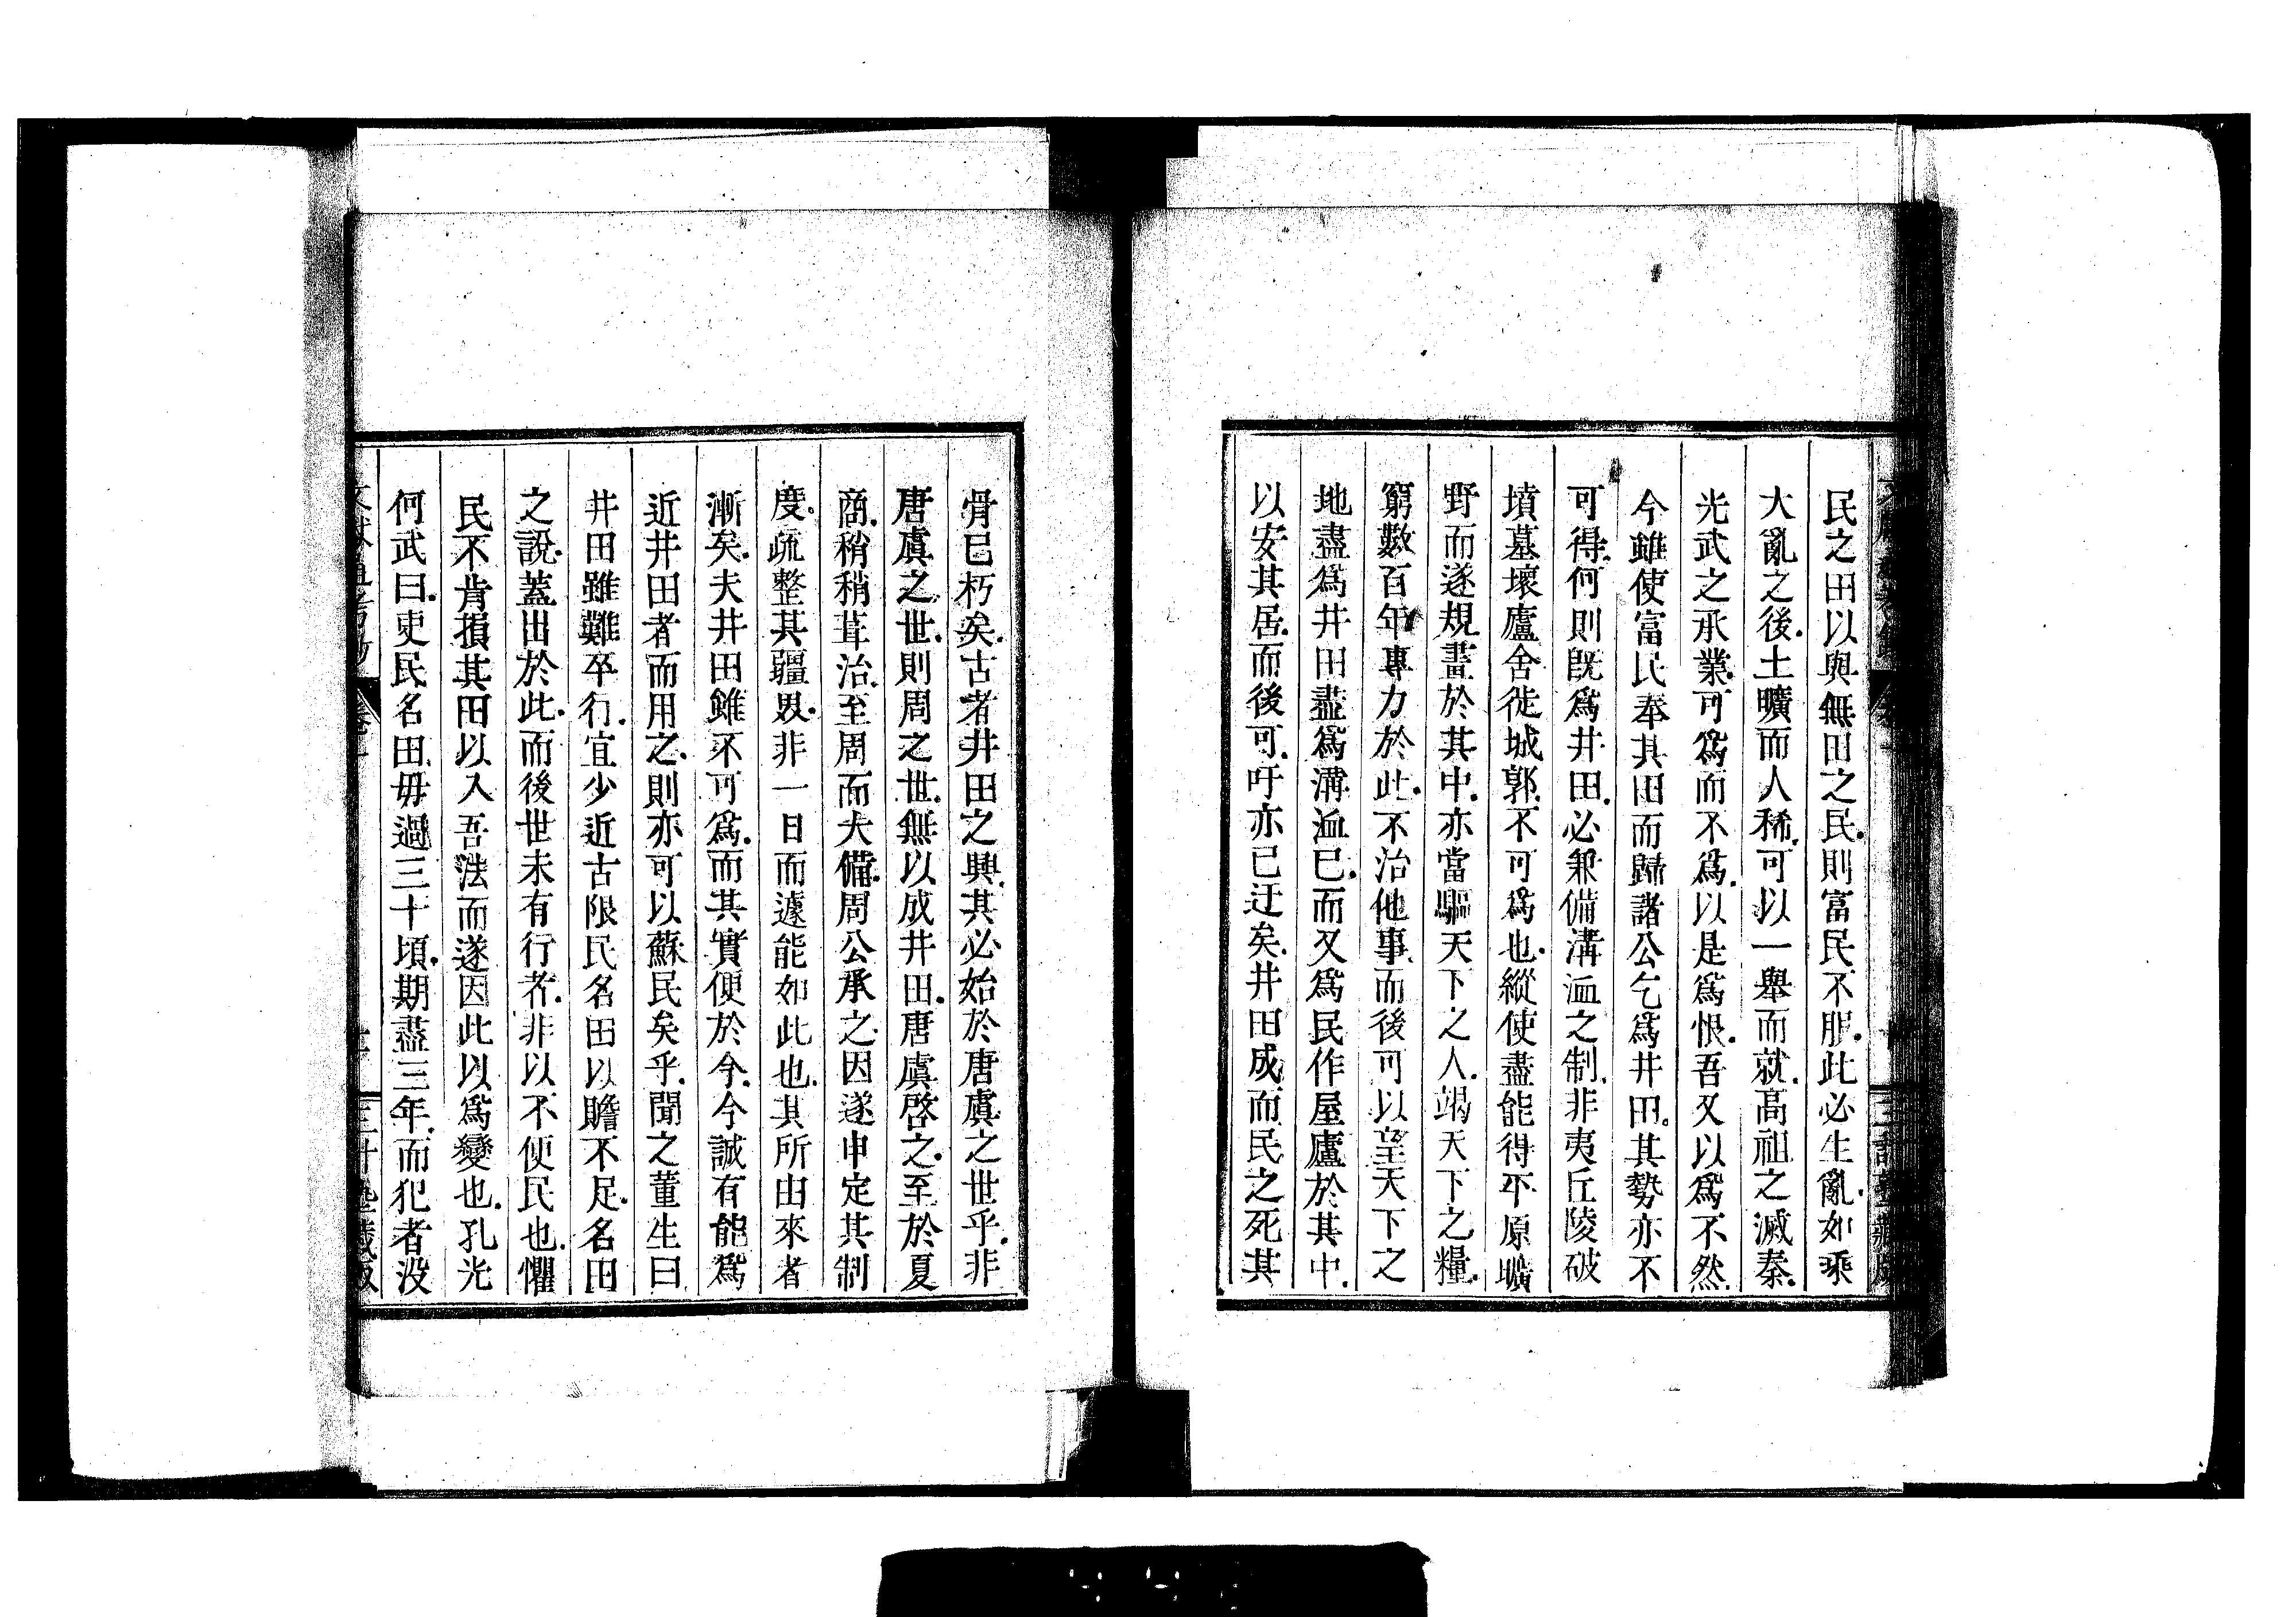 民之田以與無田之民則富民不服此必生亂如乘
大亂之後土曠而人稀可以一舉而就高祖之滅秦
光武之承業可爲而不爲以是爲恨吾又以爲不然
今雖使富民奉其田而歸諸公乞爲井田其勢亦不
可得何則旣爲井田必兼備溝洫之制非夷丘陵破
墳墓壞廬舍徙城郭不可爲也縱使盡能得平原曠
野而遂規畫於其中亦當驅天下之人竭天下之糧
窮數百年專力於此不治他事而後可以望天下之
地盡爲井田盡爲溝洫已而又爲民作屋廬於其中
以安其居而後可吁亦已迂矣井田成而民之死其
骨已朽矣古者井田之興其必始於唐虞之世乎非
唐虞之世則周之世無以成井田唐虞啓之至於夏
商稍稍葺治至周而大備周公承之因遂申定其制
度疏整其疆界非一日而遽能如此也其所由來者
漸矣夫井田雖不可爲而其實便於今今誠有能爲
近井田者而用之則亦可以蘇民矣乎聞之董生曰
井田雖難卒行宜少近古限民名田以贍不足名田
之說蓋出於此而後世未有行者非以不便民也懼
民不肯損其田以入吾法而遂因此以爲變也孔光
何武曰吏民名田毋過三十頃期盡三年而犯者沒